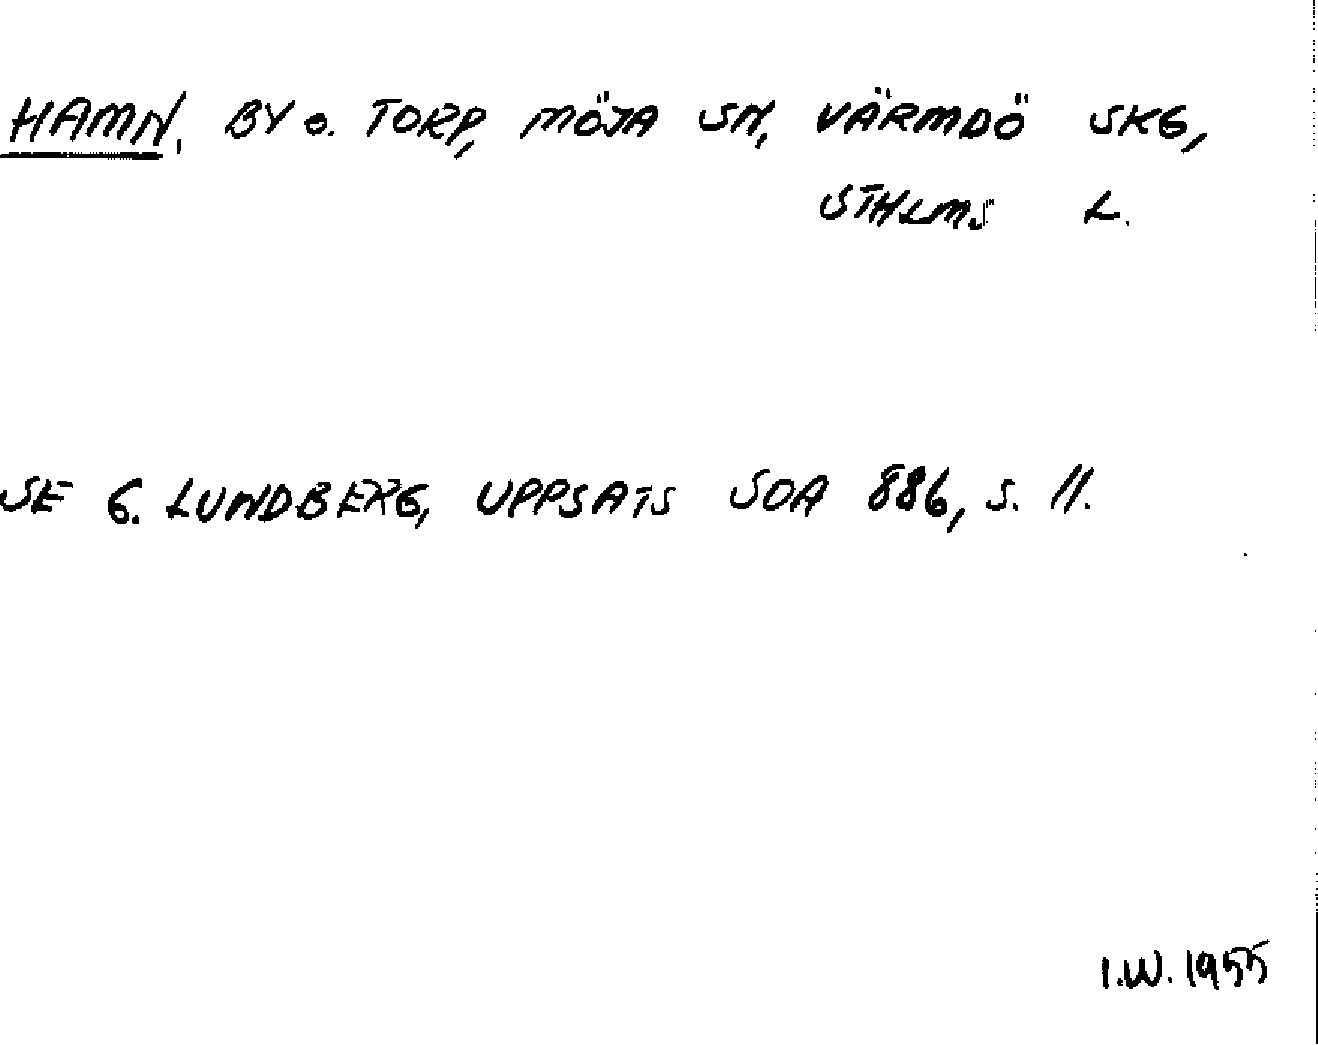 HAMN, BY o. TORP, MÖJA SN, VÄRMDÖ SKG,
STHLMS L.
SE G. LUNDBERG, UPPSATS SOA 886, s. 11.
I.W. 1955